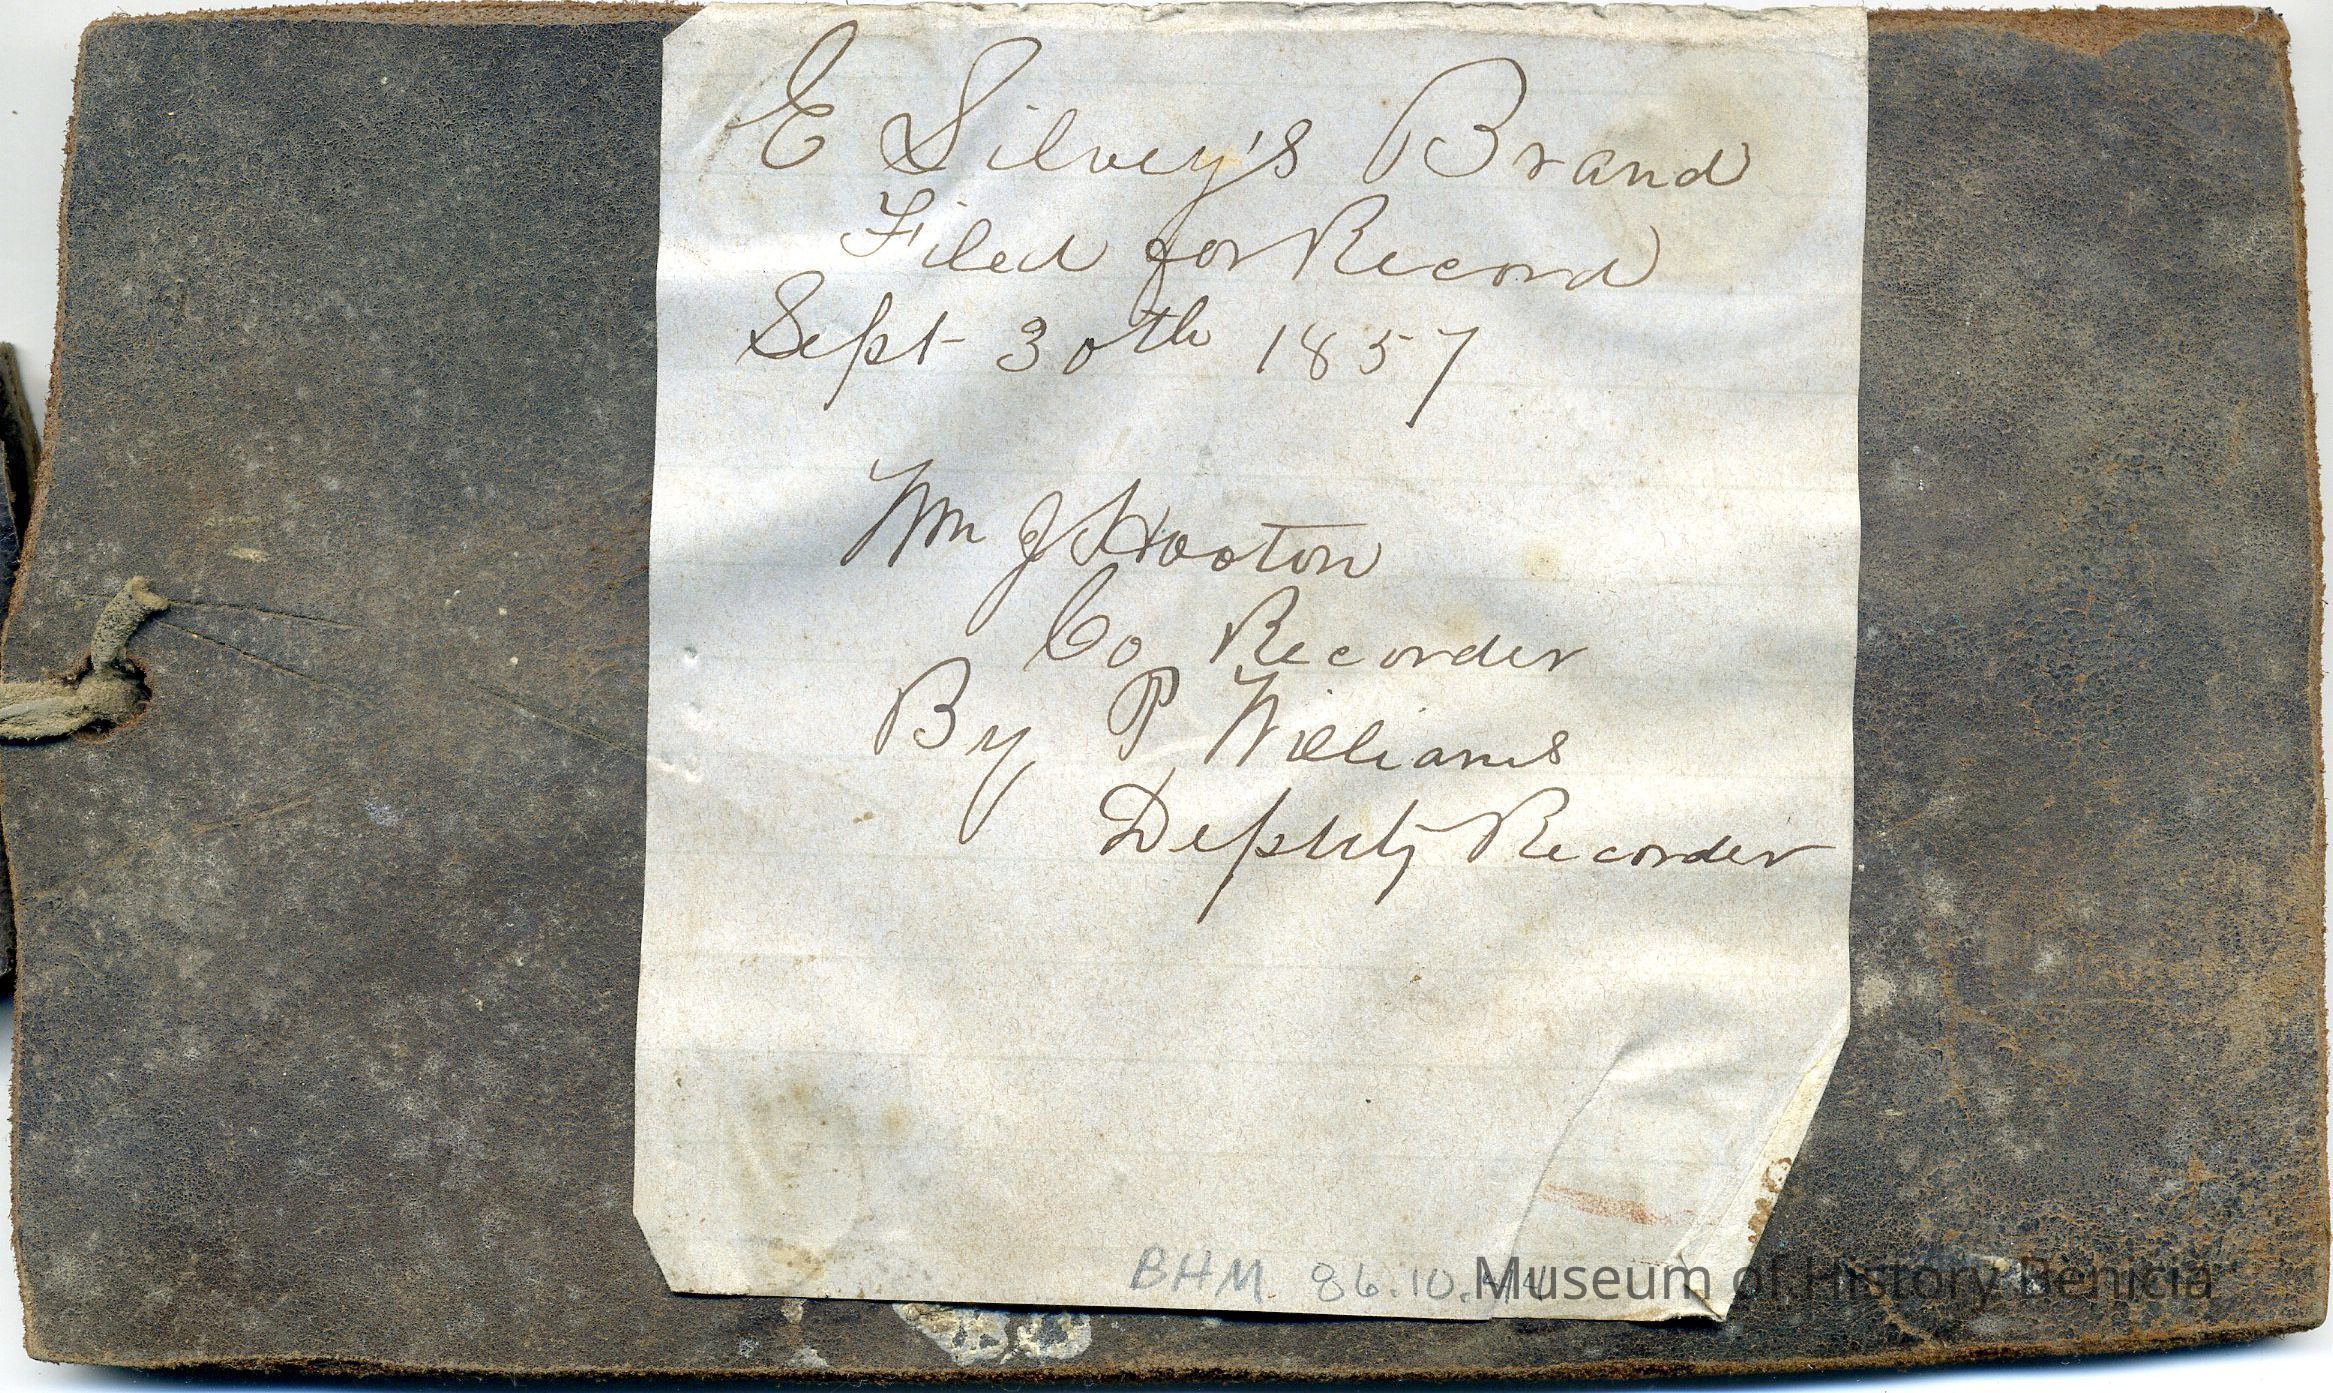 E Silvey's Brand
Filed for Record
Sept 30th 1857
Wm J Hooton
Co Recorder
By P Williams
Deputy Recorder
BHM 86.10.
Museum of History Benicia